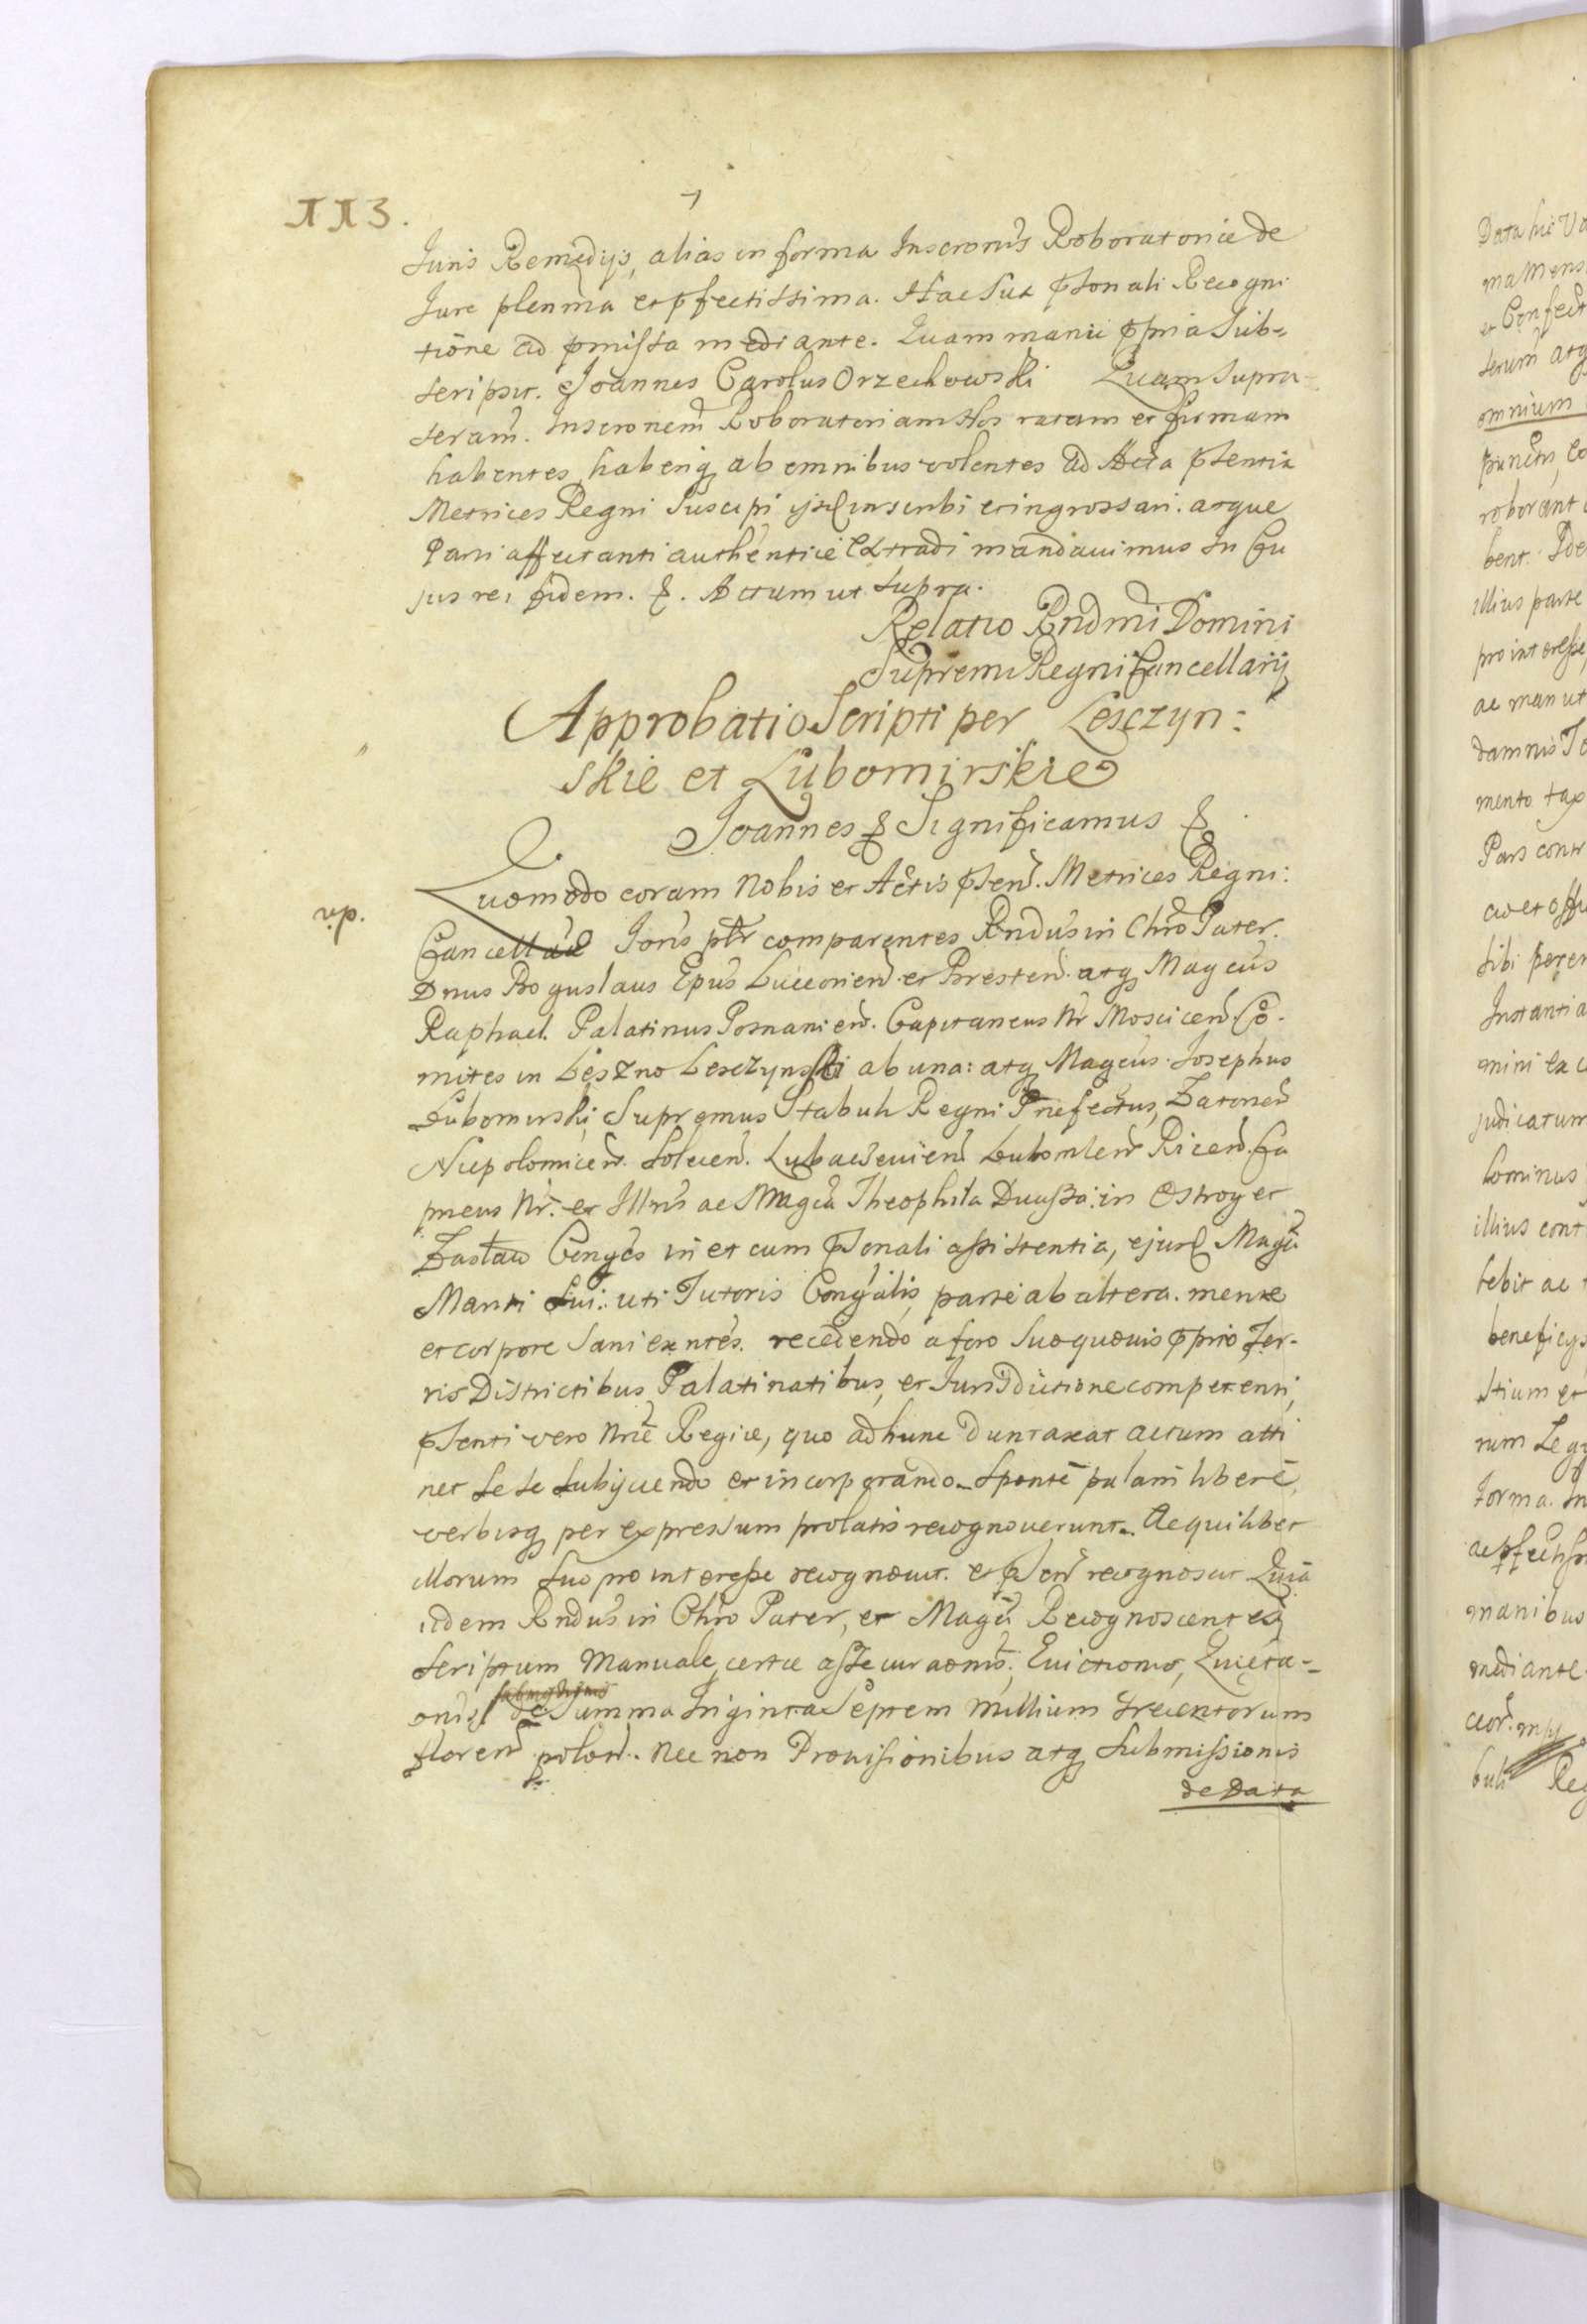 113.
Juris Remedijs, alias in forma Inscronis Roboratoriæ de
Jure plenria et pfectissima. Hac Sua psonali Recogni
tione ad pmissa mediante. Quam manu ppria Sub-
scripsit. Joannes Carolus Orzechowski Quam Supra
scram. Inscronem Roboratoriam Nos ratam et firmam
habentes, haberiq ab omnibus volentes ad Acta psentia
Metrices Regni Suscipi ijsq inscribi et ingrossari. atque
Parti affectanti authenticè extradi mandavimus In Cu
jus rei fidem. &. Actum ut Supra.
Relatio Rndmi Domini
Supremi Regni Cancellarij
Approbatio Scripti per Lesczyn:
skie et Lubomirskie
Joannes & Significamus &
Quomodo coram Nobis et Actis psen. Metrices Regni:
Cancell Joris pltr comparentes Rndus in Chro Pater.
Dnus Boguslaus Epus Luceorien et Bresten. atq Magcus
Raphael Palatinus Posnanien. Capitaneus Nr Moscicen Co-
mites in Leszno Lesczynski ab una: atq Magcus Josephus
Lubomirski, Supremus Stabuli Regni Præfectus, Zatorien
Niepolomicen. Solecen. Lubaczevien Lubomlen Ricen. Ca
pneus Nr. et Illris ac Magca Theophila Ducissa in Ostrog et
Zasław Conges in et cum psonali assistentia, ejusd Magci
Mariti Sui: uti Tutoris Congalis, parte ab altera. mente
et corpore Sani exntes. recedendo a foro Suo quovis pprio Ter-
ris Districtibus Palatinatibus, et Jurisdictione competenti,
psenti vero Nræ Regiæ, quo ad hunc duntaxat actum atti
net Sese Subijciendo et incorporando. Sponte palam libere,
verbisq per expressum prolatis recognoverunt. Ac quilibet
illorum Suo pro interesse recognovit. et psen recognoscit Quia
iidem Rndus in Chro Pater, et Magci Recognoscentes
Scriptum Manuale, certæ assecuraonis. Evictionis, Quieta-
onis de Summa Triginta Septem Millium Trecentorum
floren polon. nec non Provisionibus atq Submissionis
de Data